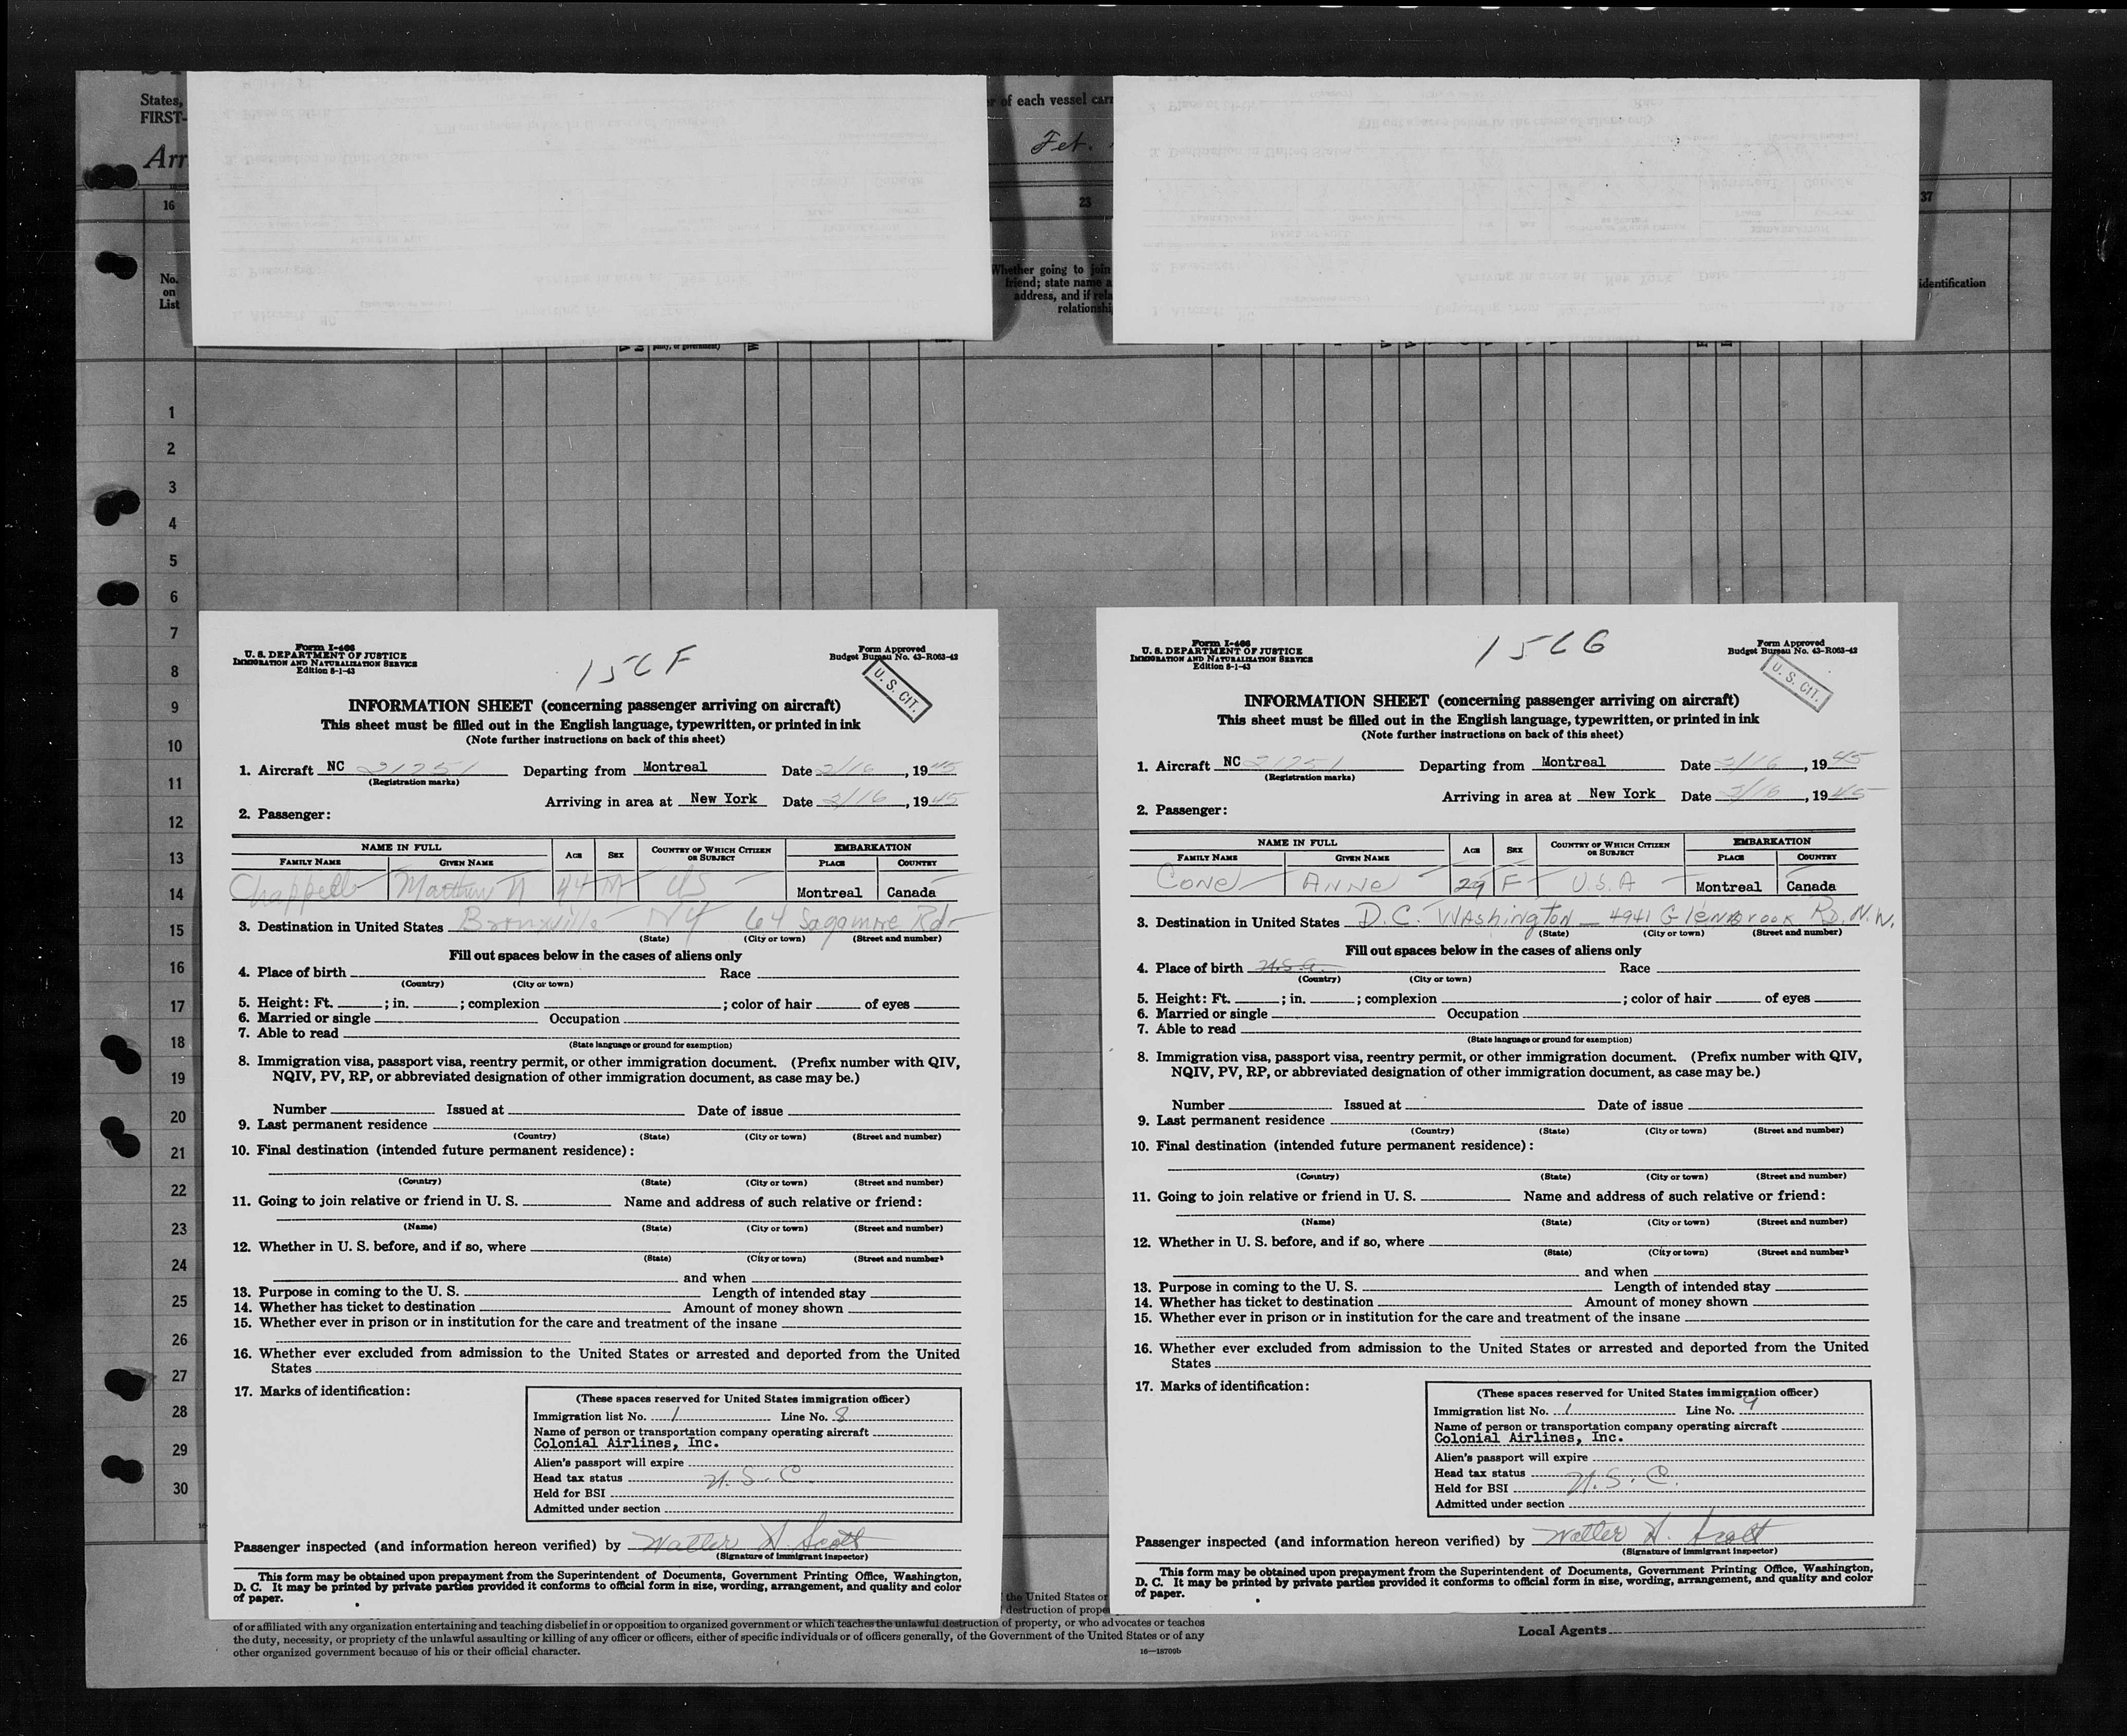 States,
FIRST-
Arr
r of each vessel carr
Feb.
16
23
37
No.
on
List
Whether going to join
friend; state name a
address, and if rela
relationshi
identification
party, or government)
1
2
3
4
5
6
7
8
9
10
11
12
13
14
15
16
17
18
19
20
21
22
23
24
25
26
27
28
29
30
Form I-466
U. S. DEPARTMENT OF JUSTICE
IMMIGRATION AND NATURALIZATION SERVICE
Edition 8-1-43
15CF
Form Approved
Budget Bureau No. 43-R063-42
U. S. CIT.
INFORMATION SHEET (concerning passenger arriving on aircraft)
This sheet must be filled out in the English language, typewritten, or printed in ink
(Note further instructions on back of this sheet)
1. Aircraft NC 21751 Departing from Montreal Date 2/16, 1945
(Registration marks)
Arriving in area at New York Date 2/16, 1945
2. Passenger:
NAME IN FULL AGE SEX COUNTRY OF WHICH CITIZEN OR SUBJECT EMBARKATION
FAMILY NAME GIVEN NAME PLACE COUNTRY
Chappell Matthew N 44 M US Montreal Canada
3. Destination in United States Bronxville NY 64 Sagamore Rd
(State) (City or town) (Street and number)
Fill out spaces below in the cases of aliens only
4. Place of birth Race
(Country) (City or town)
5. Height: Ft. ; in. ; complexion ; color of hair of eyes
6. Married or single Occupation
7. Able to read
(State language or ground for exemption)
8. Immigration visa, passport visa, reentry permit, or other immigration document. (Prefix number with QIV,
NQIV, PV, RP, or abbreviated designation of other immigration document, as case may be.)
Number Issued at Date of issue
9. Last permanent residence
(Country) (State) (City or town) (Street and number)
10. Final destination (intended future permanent residence):
(Country) (State) (City or town) (Street and number)
11. Going to join relative or friend in U. S. Name and address of such relative or friend:
(Name) (State) (City or town) (Street and number)
12. Whether in U. S. before, and if so, where
(State) (City or town) (Street and number)
and when
13. Purpose in coming to the U. S. Length of intended stay
14. Whether has ticket to destination Amount of money shown
15. Whether ever in prison or in institution for the care and treatment of the insane
16. Whether ever excluded from admission to the United States or arrested and deported from the United
States
17. Marks of identification:
(These spaces reserved for United States immigration officer)
Immigration list No. 1 Line No. 8
Name of person or transportation company operating aircraft
Colonial Airlines, Inc.
Alien's passport will expire
Head tax status U.S.C
Held for BSI
Admitted under section
Passenger inspected (and information hereon verified) by Walter H. Scott
(Signature of immigrant inspector)
This form may be obtained upon prepayment from the Superintendent of Documents, Government Printing Office, Washington,
D. C. It may be printed by private parties provided it conforms to official form in size, wording, arrangement, and quality and color
of paper.
Form I-466
U. S. DEPARTMENT OF JUSTICE
IMMIGRATION AND NATURALIZATION SERVICE
Edition 8-1-43
15CG
Form Approved
Budget Bureau No. 43-R063-42
U. S. CIT.
INFORMATION SHEET (concerning passenger arriving on aircraft)
This sheet must be filled out in the English language, typewritten, or printed in ink
(Note further instructions on back of this sheet)
1. Aircraft NC 21751 Departing from Montreal Date 2/16, 1945
(Registration marks)
Arriving in area at New York Date 2/16, 1945
2. Passenger:
NAME IN FULL AGE SEX COUNTRY OF WHICH CITIZEN OR SUBJECT EMBARKATION
FAMILY NAME GIVEN NAME PLACE COUNTRY
Cone Anne 29 F U.S.A Montreal Canada
3. Destination in United States D.C. Washington — 4941 Glenbrook Rd. N.W.
(State) (City or town) (Street and number)
Fill out spaces below in the cases of aliens only
4. Place of birth U.S.A. Race
(Country) (City or town)
5. Height: Ft. ; in. ; complexion ; color of hair of eyes
6. Married or single Occupation
7. Able to read
(State language or ground for exemption)
8. Immigration visa, passport visa, reentry permit, or other immigration document. (Prefix number with QIV,
NQIV, PV, RP, or abbreviated designation of other immigration document, as case may be.)
Number Issued at Date of issue
9. Last permanent residence
(Country) (State) (City or town) (Street and number)
10. Final destination (intended future permanent residence):
(Country) (State) (City or town) (Street and number)
11. Going to join relative or friend in U. S. Name and address of such relative or friend:
(Name) (State) (City or town) (Street and number)
12. Whether in U. S. before, and if so, where
(State) (City or town) (Street and number)
and when
13. Purpose in coming to the U. S. Length of intended stay
14. Whether has ticket to destination Amount of money shown
15. Whether ever in prison or in institution for the care and treatment of the insane
16. Whether ever excluded from admission to the United States or arrested and deported from the United
States
17. Marks of identification:
(These spaces reserved for United States immigration officer)
Immigration list No. 1 Line No. 9
Name of person or transportation company operating aircraft
Colonial Airlines, Inc.
Alien's passport will expire
Head tax status U.S.C.
Held for BSI
Admitted under section
Passenger inspected (and information hereon verified) by Walter H. Scott
(Signature of immigrant inspector)
This form may be obtained upon prepayment from the Superintendent of Documents, Government Printing Office, Washington,
D. C. It may be printed by private parties provided it conforms to official form in size, wording, arrangement, and quality and color
of paper.
the United States or
destruction of prope
of or affiliated with any organization entertaining and teaching disbelief in or opposition to organized government or which teaches the unlawful destruction of property, or who advocates or teaches
the duty, necessity, or propriety of the unlawful assaulting or killing of any officer or officers, either of specific individuals or of officers generally, of the Government of the United States or of any
other organized government because of his or their official character.
16—18700b
Local Agents